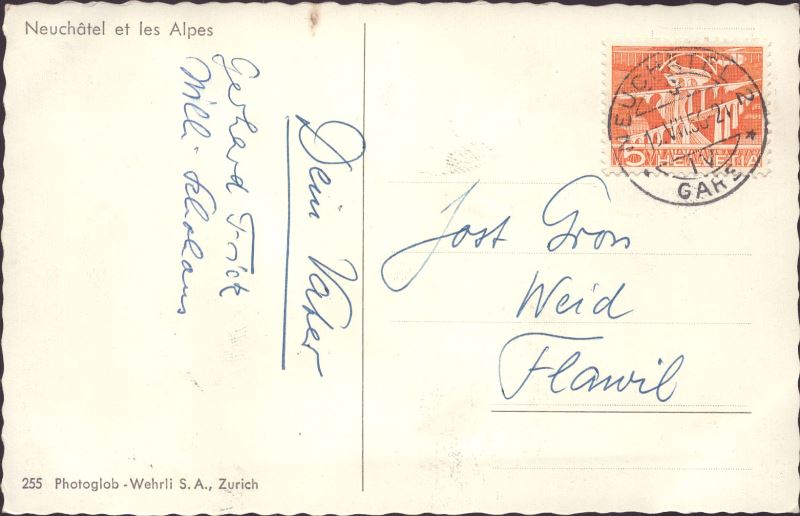 Neuchâtel et les Alpes
Dein Vater
Gerhard Frick
Willi Schohaus
Jost Gross
Weid
Flawil
NEUCHÂTEL 2
GARE
5 HELVETIA
255 Photoglob-Wehrli S.A., Zurich